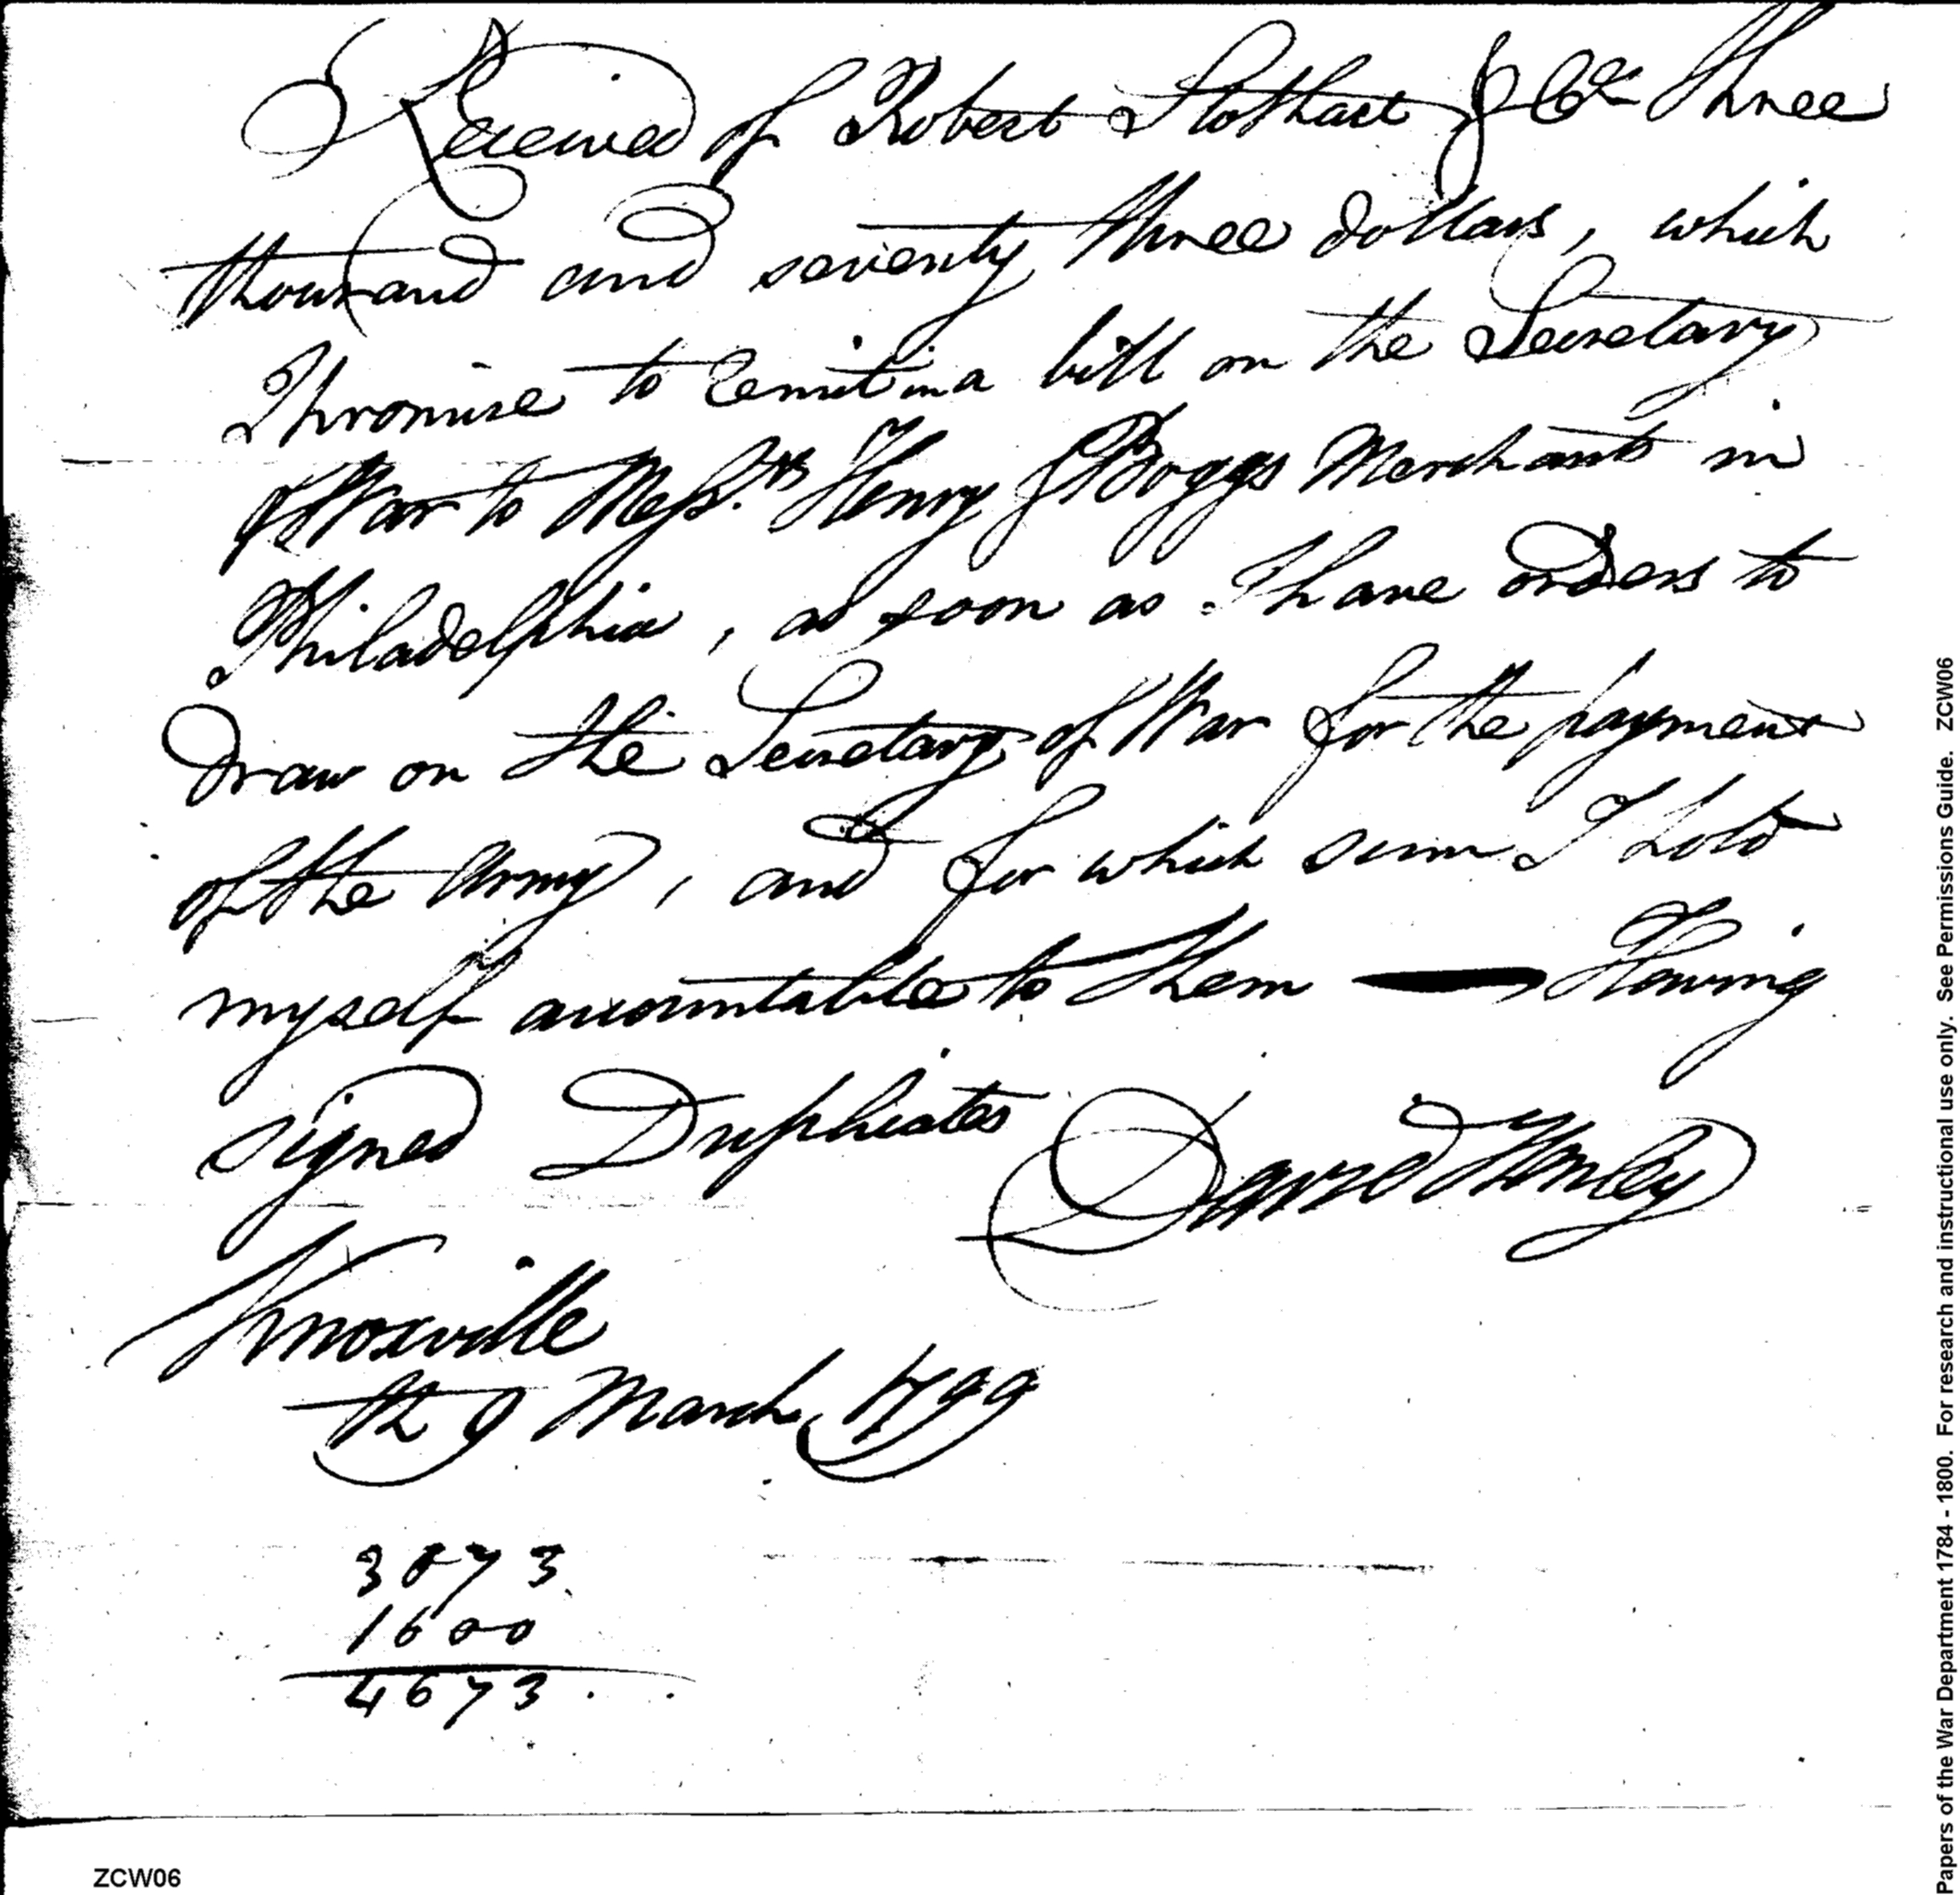 Received of Robert Stothart & Co. Three
thousand and seventy three dollars, which
I promise to remit in a bill on the Secretary
of War to Messrs. Henry & Boggs Merchants in
Philadelphia, as soon as I have orders to
Draw on the Secretary of War for the payment
of the Army, and for which sum I hold
myself accountable to them — Having
signed Duplicates David Henley
Knoxville
th 9 March 1799
3073
1600
4673
ZCW06
Papers of the War Department 1784 - 1800. For research and instructional use only. See Permissions Guide. ZCW06